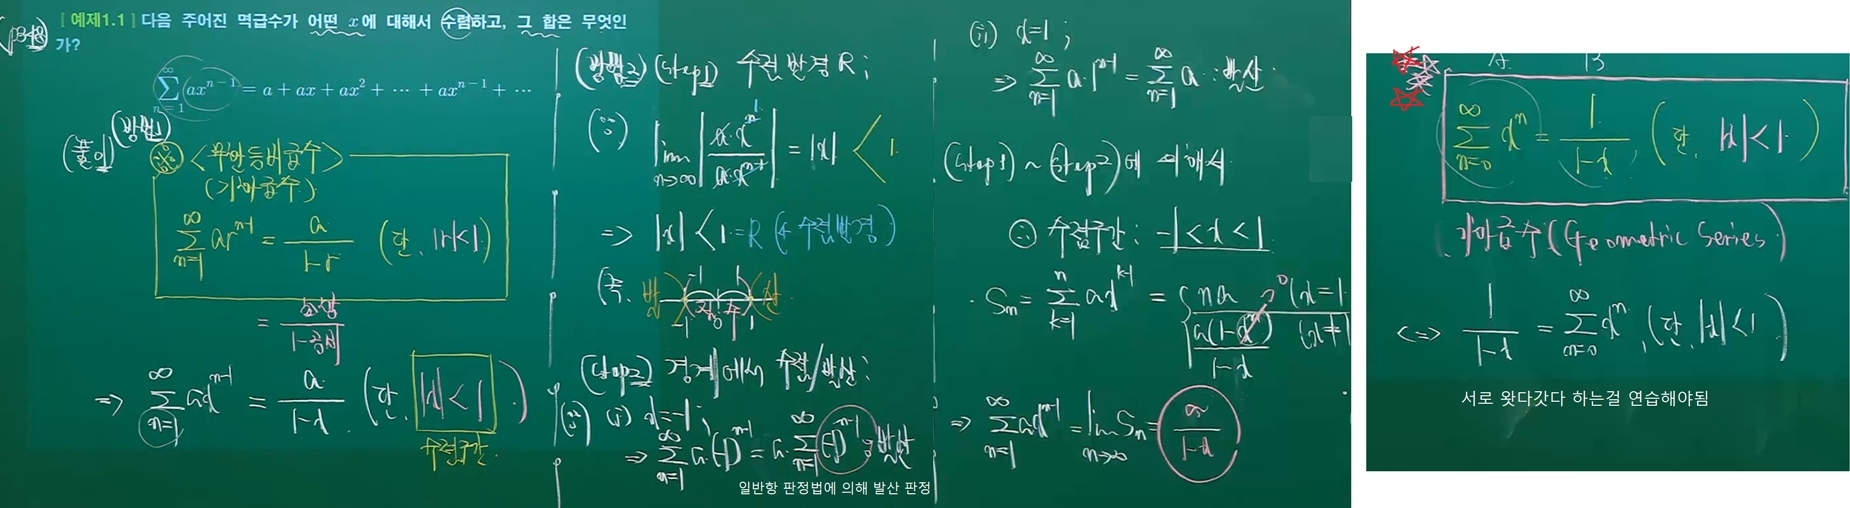 [예제1.1] 다음 주어진 멱급수가 어떤 x에 대해서 수렴하고, 그 합은 무엇인
가?
∑_{n=1}^{∞} ax^{n-1} = a + ax + ax² + ⋯ + ax^{n-1} + ⋯
(풀이) (방법1)
<무한등비급수>
(기하급수)
∑_{n=1}^{∞} ar^{n-1} = a/(1-r) (단, |r|<1)
= 초항/(1-공비)
⇒ ∑_{n=1}^{∞} ax^{n-1} = a/(1-x) (단, |x|<1)
수렴구간
(방법2) (Step1) 수렴반경 R;
(∵) lim_{n→∞} |a·x^n / a·x^{n-1}| = |x| < 1
⇒ |x| < 1 = R (← 수렴반경)
(즉, 발 -1 수 1 산
-1 0 1
(Step2) 경계에서 수렴/발산;
(∵) (i) x=-1;
⇒ ∑_{n=1}^{∞} a·(-1)^{n-1} = a·∑_{n=1}^{∞} (-1)^{n-1} : 발산
일반항 판정법에 의해 발산 판정
(ii) x=1;
⇒ ∑_{n=1}^{∞} a·1^{n-1} = ∑_{n=1}^{∞} a : 발산
(Step1) ~ (Step2)에 의해서
∴ 수렴구간: -1<x<1
· S_n = ∑_{k=1}^{n} ax^{k-1} = { na (x=1
a(1-x^n)/(1-x) (x≠1
0
⇒ ∑_{n=1}^{∞} ax^{n-1} = lim_{n→∞} S_n = a/(1-x)
∑_{n=0}^{∞} x^n = 1/(1-x) (단, |x|<1)
기하급수(Geometric Series)
<=> 1/(1-x) = ∑_{n=0}^{∞} x^n, (단, |x|<1)
서로 왓다갓다 하는걸 연습해야됨